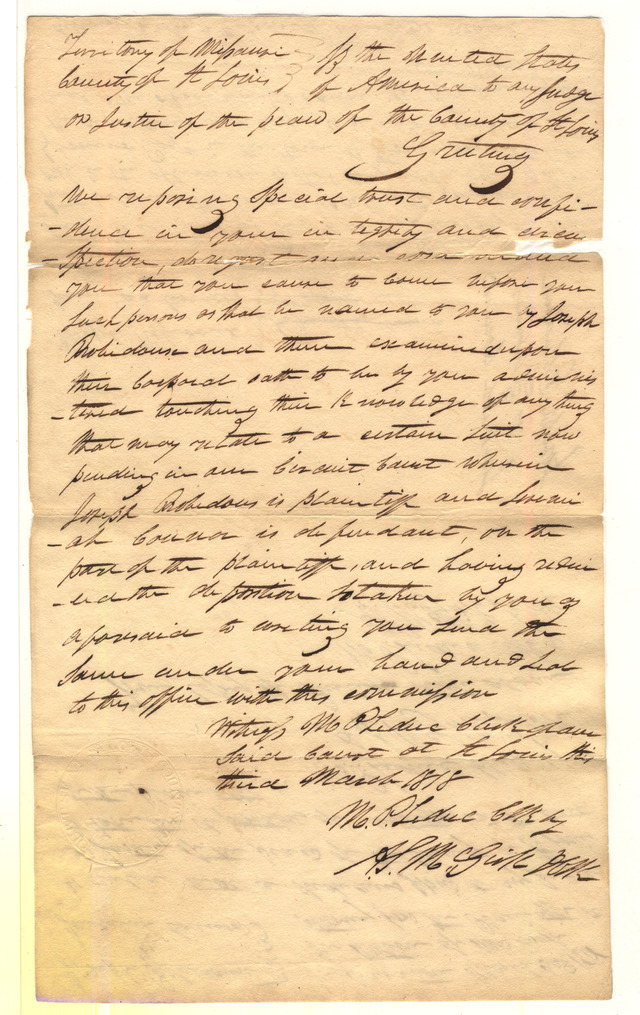 Territory of Missouri } the United States
County of St Louis } of America to any Judge
or Justice of the peace of the County of St Louis
Greeting
We reposing Special trust and confi-
-dence in your in tegrity and circu
-Spection, do request
you that you cause to Come before you
Such persons as that be named to you by Joseph
Robidoux and them examined upon
their Corporal oath to be by you adminis
-tered touching their Knowledge of anything
that may relate to a certain Suit now
pending in our Circuit Court wherein
Joseph Robidoux is plaintiff and Jeremi
-ah Connor is defendant, on the
part of the plaintiff, and having redu
-ced the deposition so taken by you as
aforesaid to writing you Send the
Same under your hand and Seal
to this office with this commission
Witness M P Leduc Clerk of our
Said Court at St Louis this
third March 1818
M. P. Leduc Clk by